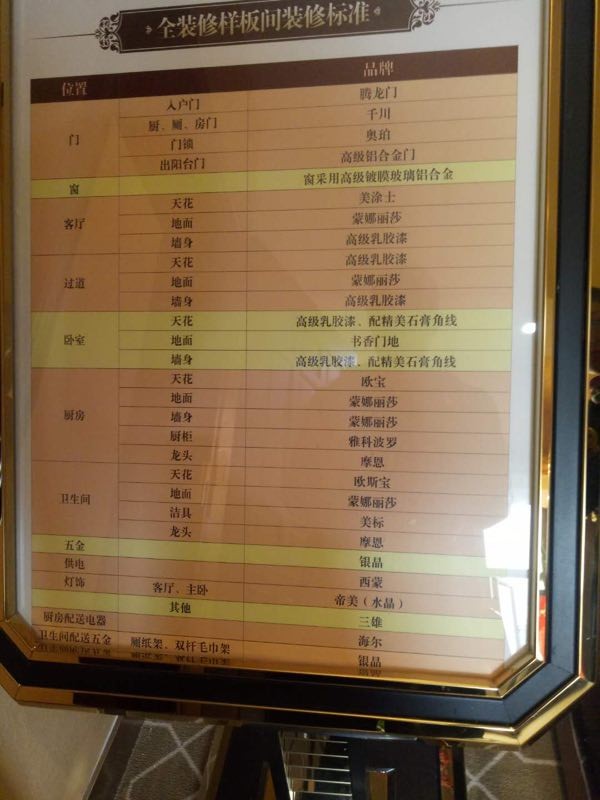 全装修样板间装修标准
位置 品牌
门 入户门 腾龙门
厨、厕、房门 千川
门锁 奥珀
出阳台门 高级铝合金门
窗 窗采用高级镀膜玻璃铝合金
客厅 天花 美涂士
地面 蒙娜丽莎
墙身 高级乳胶漆
过道 天花 高级乳胶漆
地面 蒙娜丽莎
墙身 高级乳胶漆
卧室 天花 高级乳胶漆、配精美石膏角线
地面 书香门地
墙身 高级乳胶漆、配精美石膏角线
厨房 天花 欧宝
地面 蒙娜丽莎
墙身 蒙娜丽莎
厨柜 雅科波罗
龙头 摩恩
卫生间 天花 欧斯宝
地面 蒙娜丽莎
洁具 美标
龙头 摩恩
五金 银晶
供电 西蒙
灯饰 客厅、主卧 帝美（水晶）
其他 三雄
厨房配送电器 海尔
卫生间配送五金 厕纸架、双杆毛巾架 银晶